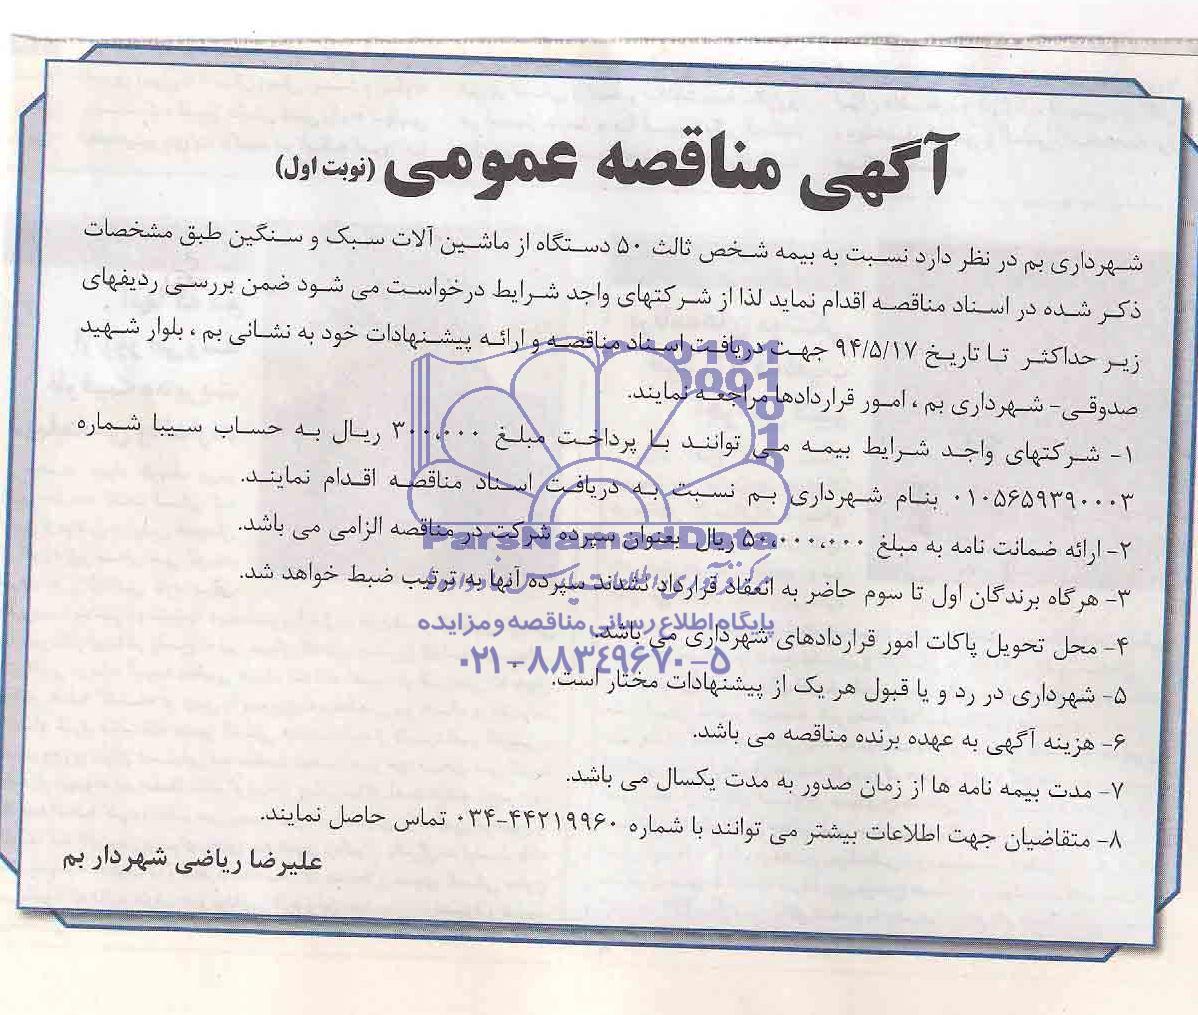 آگهی مناقصه عمومی (نوبت اول)
شهرداری بم در نظر دارد نسبت به بیمه شخص ثالث ۵۰ دستگاه از ماشین آلات سبک و سنگین طبق مشخصات
ذکر شده در اسناد مناقصه اقدام نماید لذا از شرکتهای واجد شرایط درخواست می شود ضمن بررسی ردیفهای
زیر حداکثر تا تاریخ ۹۴/۵/۱۷ جهت دریافت اسناد مناقصه و ارائه پیشنهادات خود به نشانی بم ، بلوار شهید
صدوقی- شهرداری بم ، امور قراردادها مراجعه نمایند.
۱- شرکتهای واجد شرایط بیمه می توانند با پرداخت مبلغ ۳۰۰،۰۰۰ ریال به حساب سیبا شماره
۰۱۰۵۶۵۹۳۹۰۰۰۳ بنام شهرداری بم نسبت به دریافت اسناد مناقصه اقدام نمایند.
۲- ارائه ضمانت نامه به مبلغ ۵۰،۰۰۰،۰۰۰ ریال بعنوان سپرده شرکت در مناقصه الزامی می باشد.
ParsNamadData
۳- هرگاه برندگان اول تا سوم حاضر به انعقاد قرارداد نشدند سپرده آنها به ترتیب ضبط خواهد شد.
پایگاه اطلاع رسانی مناقصه و مزایده
۴- محل تحویل پاکات امور قراردادهای شهرداری می باشد.
۰۲۱-۸۸۳۴۹۶۷۰-۵
۵- شهرداری در رد و یا قبول هر یک از پیشنهادات مختار است.
۶- هزینه آگهی به عهده برنده مناقصه می باشد.
۷- مدت بیمه نامه ها از زمان صدور به مدت یکسال می باشد.
۸- متقاضیان جهت اطلاعات بیشتر می توانند با شماره ۴۴۲۱۹۹۶۰-۰۳۴ تماس حاصل نمایند.
علیرضا ریاضی شهردار بم